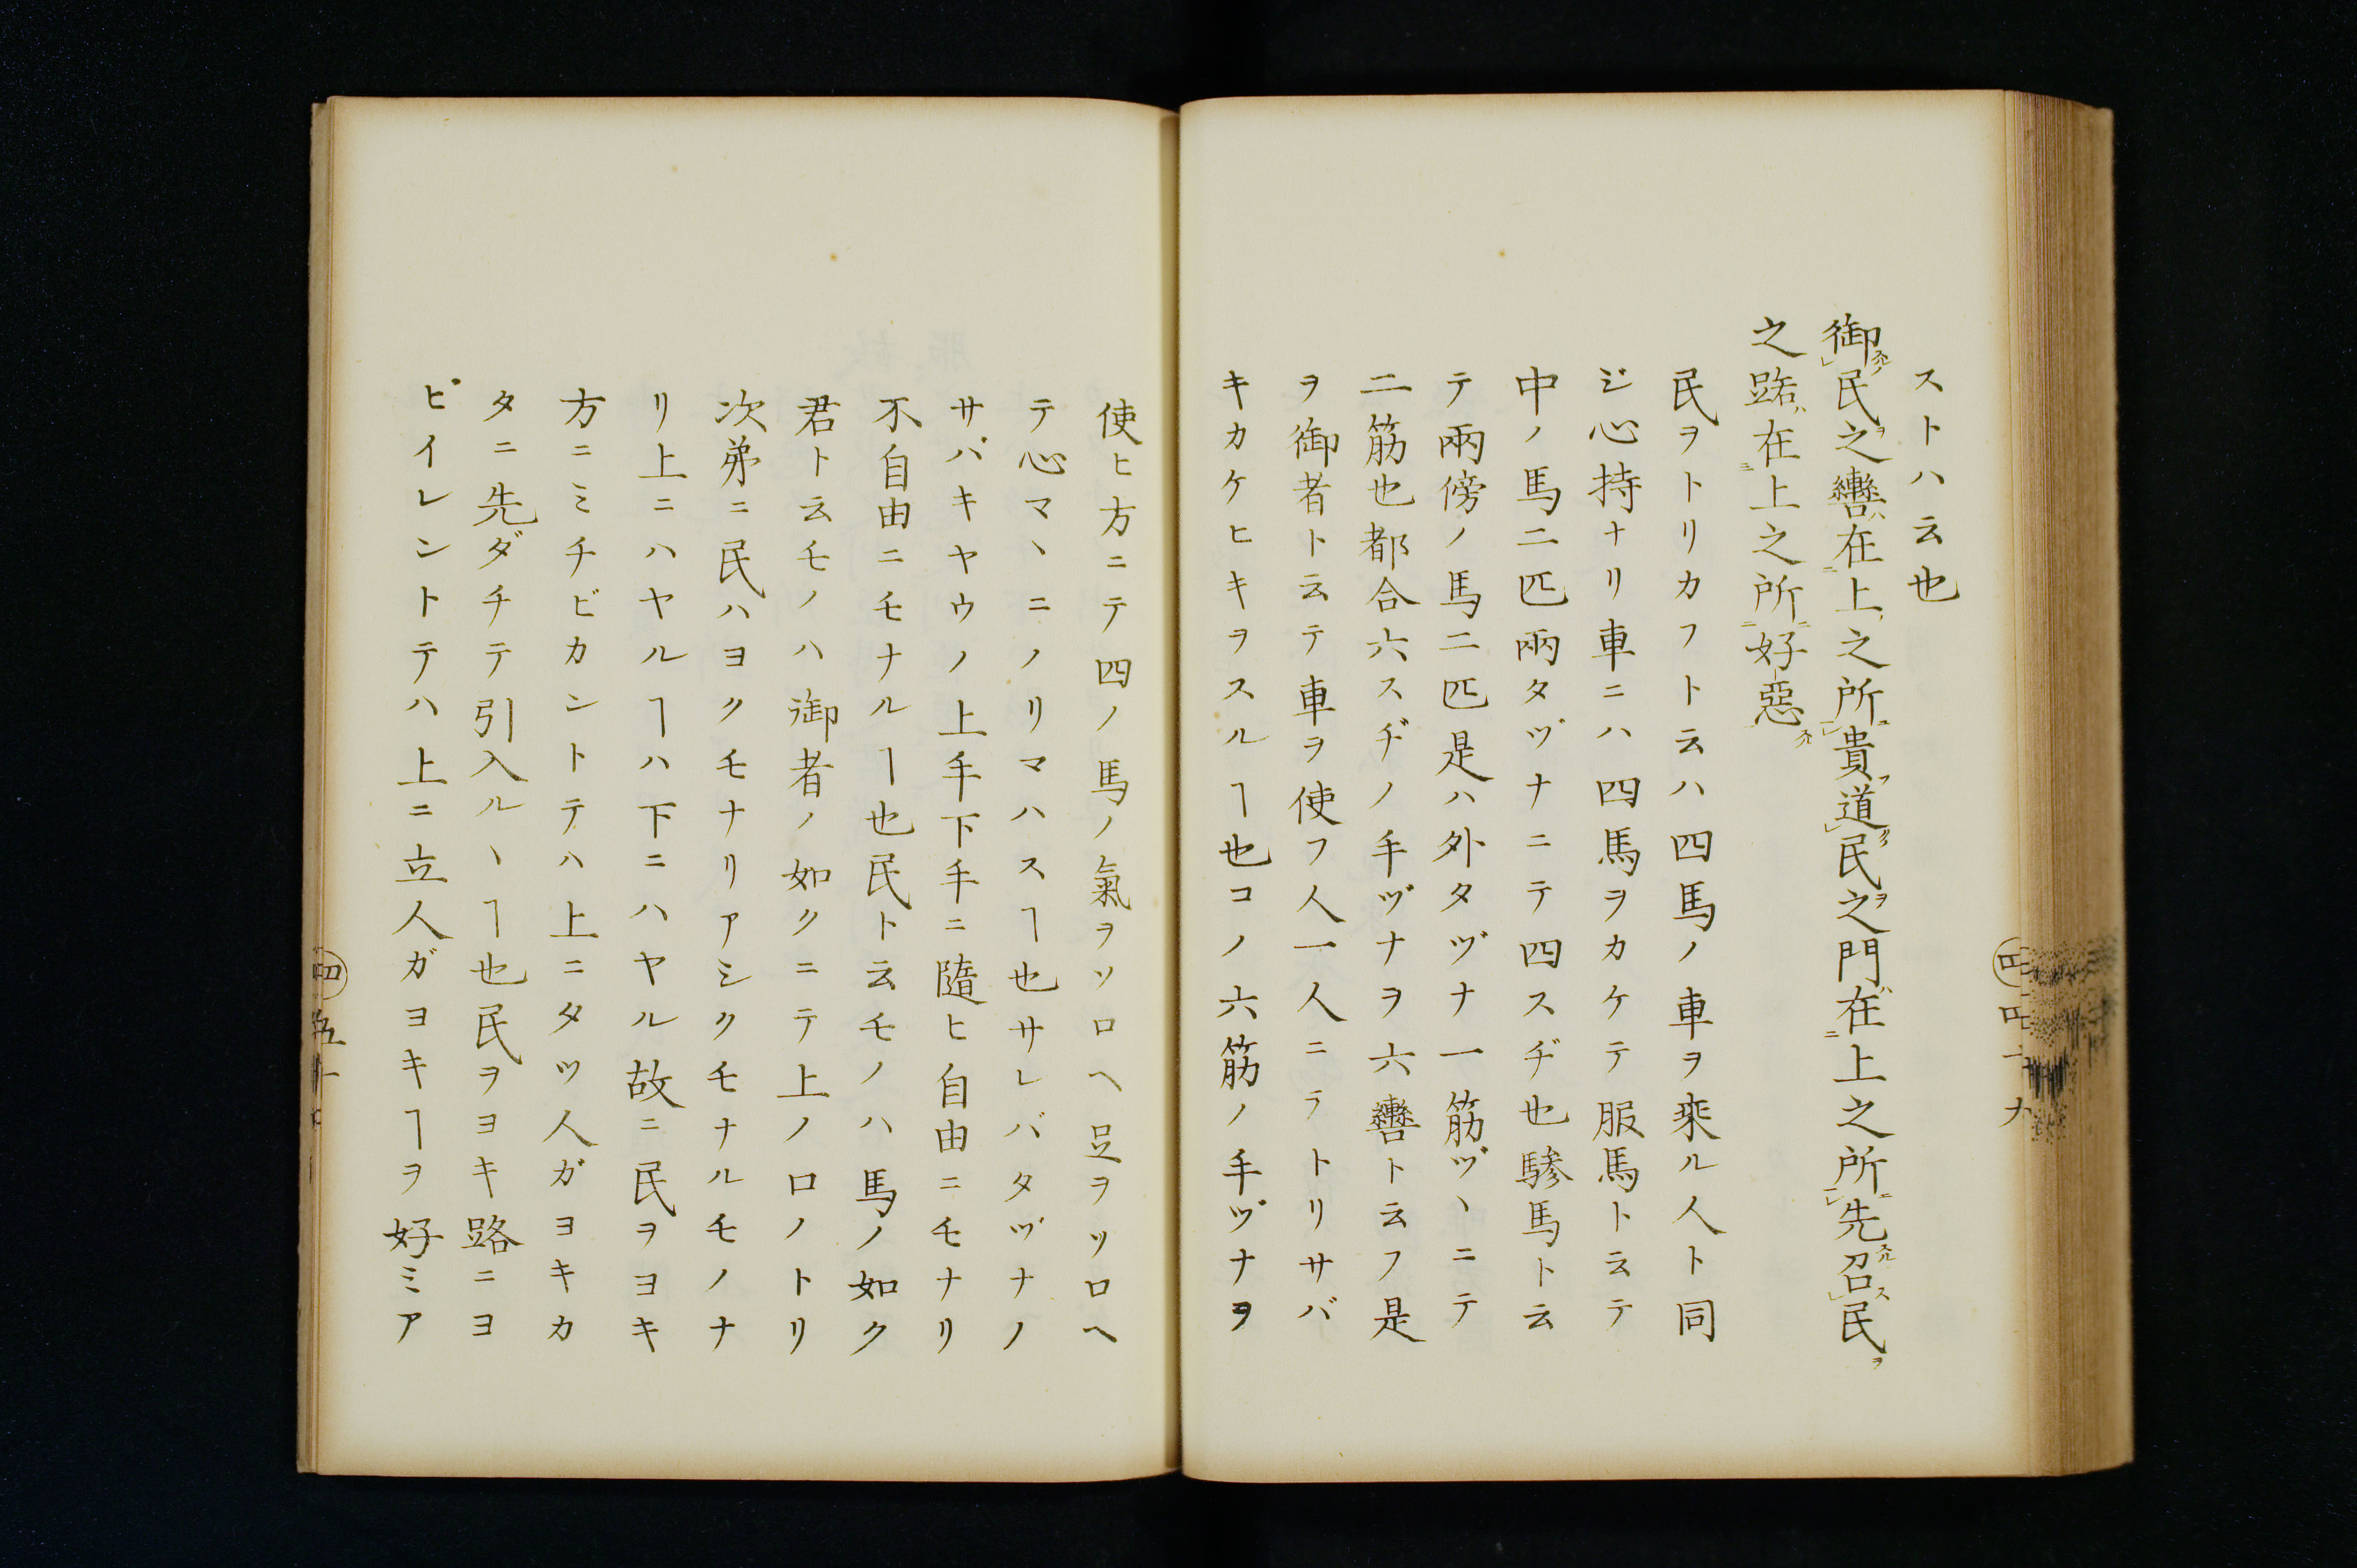 ストハ云也
御民之轡在上之所貴道民之門在上之所先召民
之路在上之所好惡
民ヲトリカフト云ハ四馬ノ車ヲ乘ル人ト同
ジ心持ナリ車ニハ四馬ヲカケテ服馬ト云テ
中ノ馬二匹兩タヅナニテ四スヂ也驂馬ト云
テ兩傍ノ馬二匹是ハ外タヅナ一筋ヅヽニテ
二筋也都合六スヂノ手ヅナヲ六轡ト云フ是
ヲ御者ト云テ車ヲ使フ人一人ニテトリサバ
キカケヒキヲスルヿ也コノ六筋ノ手ヅナヲ
使ヒ方ニテ四ノ馬ノ氣ヲソロヘ足ヲソロヘ
テ心マヽニノリマハスヿ也サレバタヅナノ
サバキヤウノ上手下手ニ隨ヒ自由ニモナリ
不自由ニモナルヿ也民ト云モノハ馬ノ如ク
君ト云モノハ御者ノ如クニテ上ノロノトリ
次弟ニ民ハヨクモナリアシクモナルモノナ
リ上ニハヤルヿハ下ニハヤル故ニ民ヲヨキ
方ニミチビカントテハ上ニタツ人ガヨキカ
タニ先ダチテ引入ルヽヿ也民ヲヨキ路ニヨ
ビイレントテハ上ニ立人ガヨキヿヲ好ミア
四 四十九
四 五十